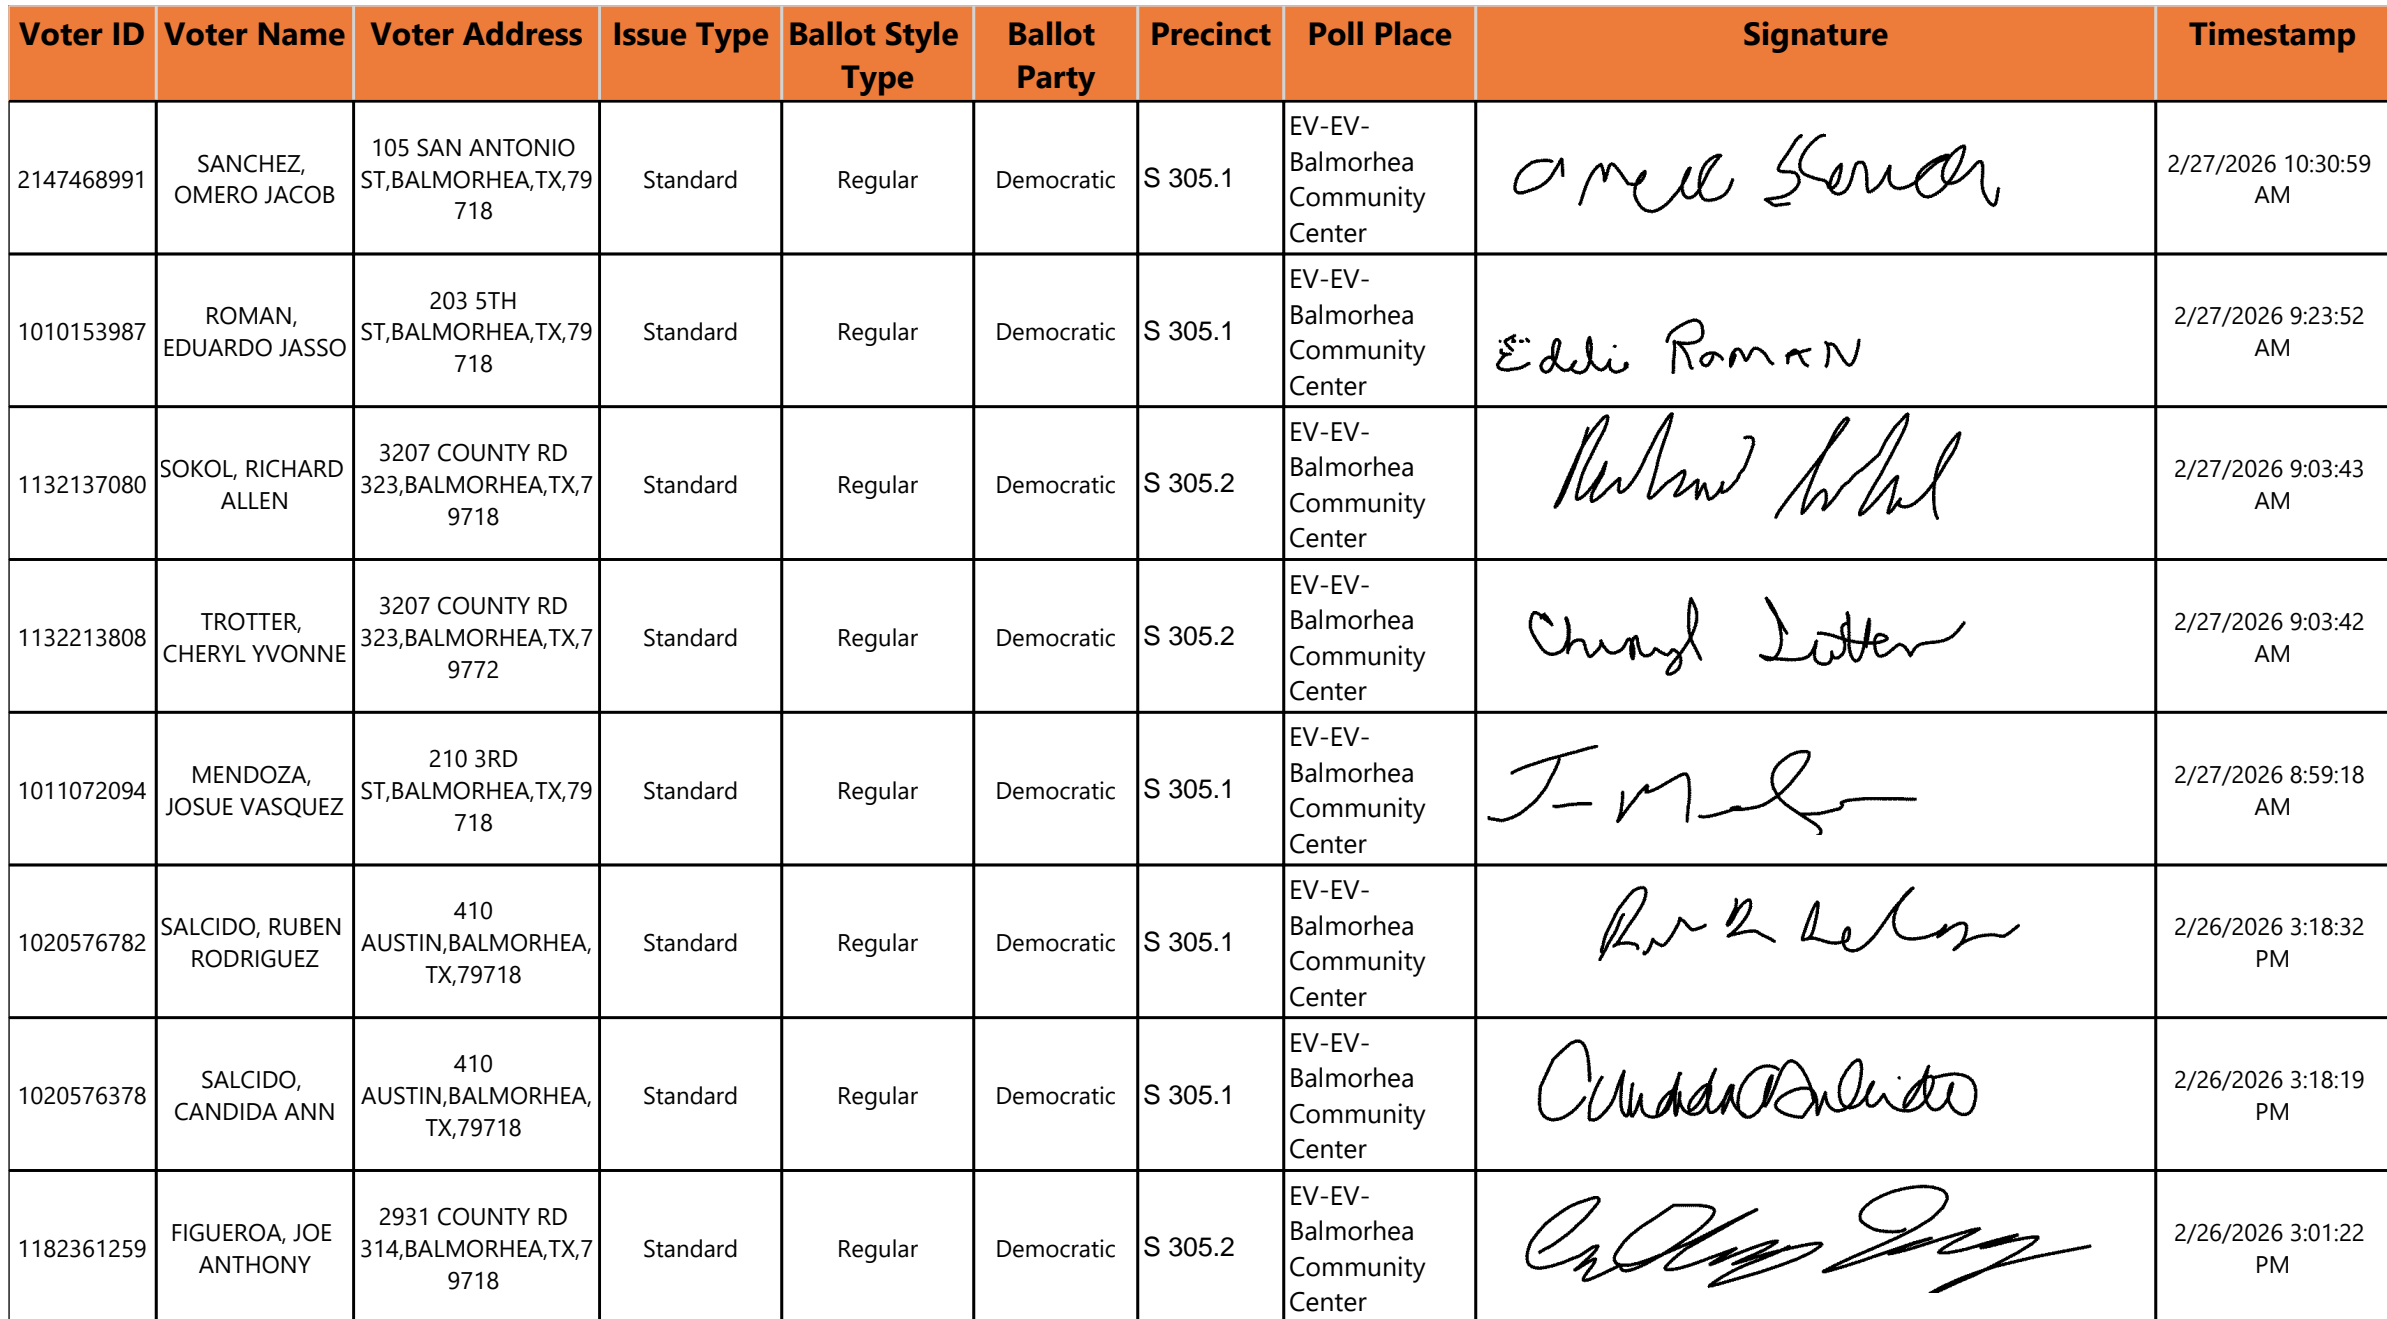 Voter ID Voter Name Voter Address Issue Type Ballot Style Type Ballot Party Precinct Poll Place Signature Timestamp
2147468991
SANCHEZ,
OMERO JACOB
105 SAN ANTONIO
ST,BALMORHEA,TX,79
718
Standard
Regular
Democratic
S 305.1
EV-EV-
Balmorhea
Community
Center
2/27/2026 10:30:59
AM
1010153987
ROMAN,
EDUARDO JASSO
203 5TH
ST,BALMORHEA,TX,79
718
Standard
Regular
Democratic
S 305.1
EV-EV-
Balmorhea
Community
Center
Eddie ROMAN
2/27/2026 9:23:52
AM
1132137080
SOKOL, RICHARD
ALLEN
3207 COUNTY RD
323,BALMORHEA,TX,7
9718
Standard
Regular
Democratic
S 305.2
EV-EV-
Balmorhea
Community
Center
Richard Sokol
2/27/2026 9:03:43
AM
1132213808
TROTTER,
CHERYL YVONNE
3207 COUNTY RD
323,BALMORHEA,TX,7
9772
Standard
Regular
Democratic
S 305.2
EV-EV-
Balmorhea
Community
Center
Cheryl Trotter
2/27/2026 9:03:42
AM
1011072094
MENDOZA,
JOSUE VASQUEZ
210 3RD
ST,BALMORHEA,TX,79
718
Standard
Regular
Democratic
S 305.1
EV-EV-
Balmorhea
Community
Center
2/27/2026 8:59:18
AM
1020576782
SALCIDO, RUBEN
RODRIGUEZ
410
AUSTIN,BALMORHEA,
TX,79718
Standard
Regular
Democratic
S 305.1
EV-EV-
Balmorhea
Community
Center
2/26/2026 3:18:32
PM
1020576378
SALCIDO,
CANDIDA ANN
410
AUSTIN,BALMORHEA,
TX,79718
Standard
Regular
Democratic
S 305.1
EV-EV-
Balmorhea
Community
Center
Candida A Salcido
2/26/2026 3:18:19
PM
1182361259
FIGUEROA, JOE
ANTHONY
2931 COUNTY RD
314,BALMORHEA,TX,7
9718
Standard
Regular
Democratic
S 305.2
EV-EV-
Balmorhea
Community
Center
2/26/2026 3:01:22
PM